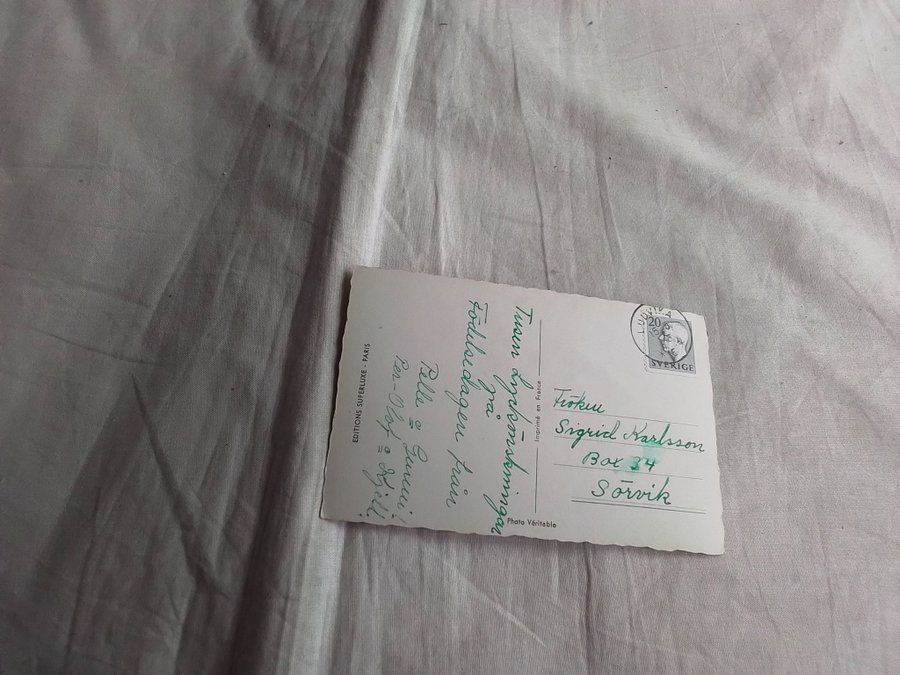 Tusen lyckönskningar
på
Födelsedagen från
Pelle o Gunni!
Per-Olof o Kjell!
EDITIONS SUPERLUXE - PARIS
Imprimé en France
Photo Véritable
LUDVIKA
20
SVERIGE
Fröken
Sigrid Karlsson
Box 34
Sörvik